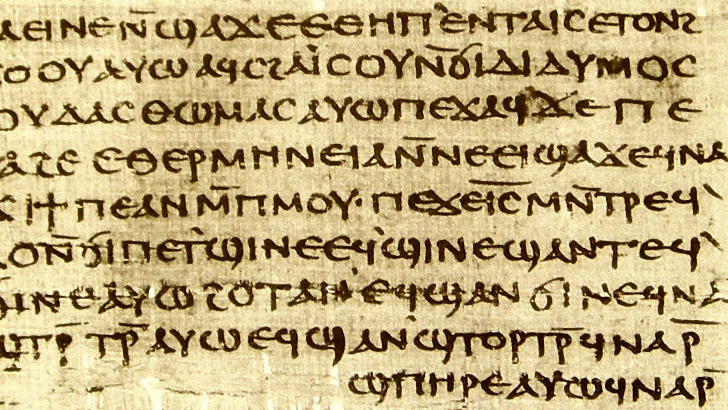 ⲁⲉⲓⲛⲉⲛ̄ϣⲁϫⲉⲉⲑⲏⲡ`ⲉⲛⲧⲁⲓⲥⲉⲧⲟⲛϩ
ϫⲟⲟⲩⲁⲩⲱⲁϥⲥϩⲁⲓ̈ⲥⲟⲩⲛ̄ϭⲓⲇⲓⲇⲩⲙⲟⲥ
ⲟⲩⲇⲁⲥⲑⲱⲙⲁⲥⲁⲩⲱⲡⲉϫⲁϥϫⲉⲡⲉ
ϩⲁϩⲉⲉⲑⲉⲣⲙⲏⲛⲉⲓⲁⲛ̄ⲛⲉⲉⲓϣⲁϫⲉϥⲛⲁ
ϫⲓϯⲡⲉⲁⲛⲙ̄ⲡⲙⲟⲩ·ⲡⲉϫⲉⲓ̄ⲥ̄ⲙⲛ̄ⲧⲣⲉϥ`
ⲗⲟⲛ̄ϭⲓⲡⲉⲧ`ϣⲓⲛⲉⲉϥ`ϣⲓⲛⲉϣⲁⲛⲧⲉϥ`
ϭⲓⲛⲉⲁⲩⲱϩⲟⲧⲁⲛ`ⲉϥϣⲁⲛϭⲓⲛⲉϥⲛⲁ
ϣⲧⲣ̄ⲧⲣ̄ⲁⲩⲱⲉϥϣⲁⲛ`ϣⲧⲟⲣⲧⲣ̄ϥⲛⲁⲣ̄
ϣⲡⲏⲣⲉⲁⲩⲱϥⲛⲁⲣ̄